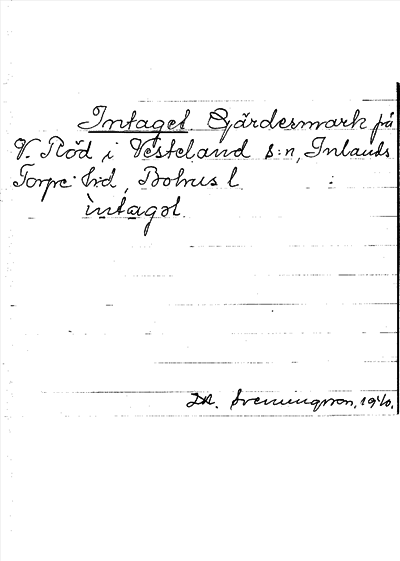 Intaget. Gärdesmark på
V. Röd i Vesteland s:n, Inlands
Torpe hd, Bohus l
ìntagət.
Sveningsson, 1940.